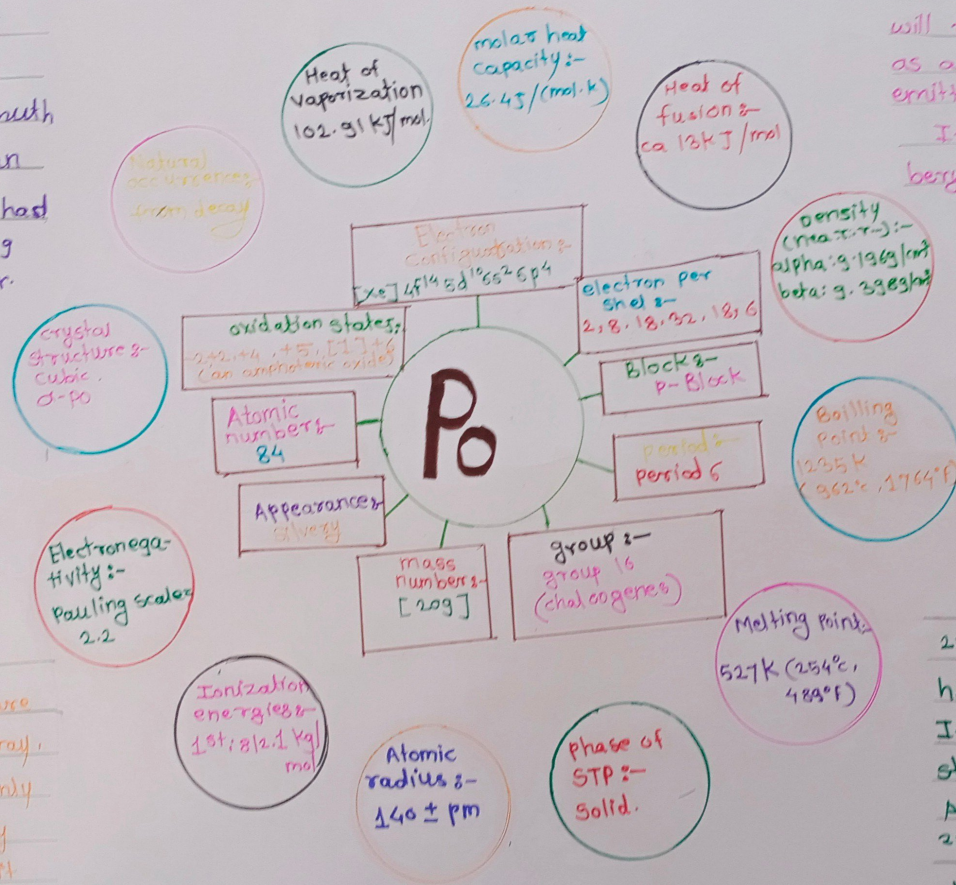 Heat of
vaporization
102.91 kJ/mol.
molar heat
capacity:-
26.4J/(mol.K)
Heat of
fusion:-
ca 13kJ/mol
will
as a
emitt
I
bery
outh
n
had
g
r.
Natural
occurrence:
from decay
Density
(near.r.):-
alpha:9.196g/cm³
beta: 9.398g/cm³
Electron
Configuration:-
[Xe] 4f¹⁴ 5d¹⁰ 6s² 6p⁴
electron per
shel:-
2,8,18,32,18,6
oxidation states:
-2+2,+4,+5,[1]+6
(an amphoteric oxide)
crystal
structure:-
cubic.
α-po
Po
Block:-
p-Block
Atomic
number:-
84
period:-
period 6
Boilling
Point:-
1235K
(962°c,1764°F)
Appearance:
silvery
mass
number:-
[209]
group:-
group 16
(chalcogenes)
Electronega-
tivity:-
Pauling scale:
2.2
Melting Point:
527K (254°c,
489°F)
Ionization
energies:-
1st:812.1 kg/
mol
Atomic
radius:-
140 ± pm
phase of
STP:-
Solid.
ray,
2
h
I
st
2